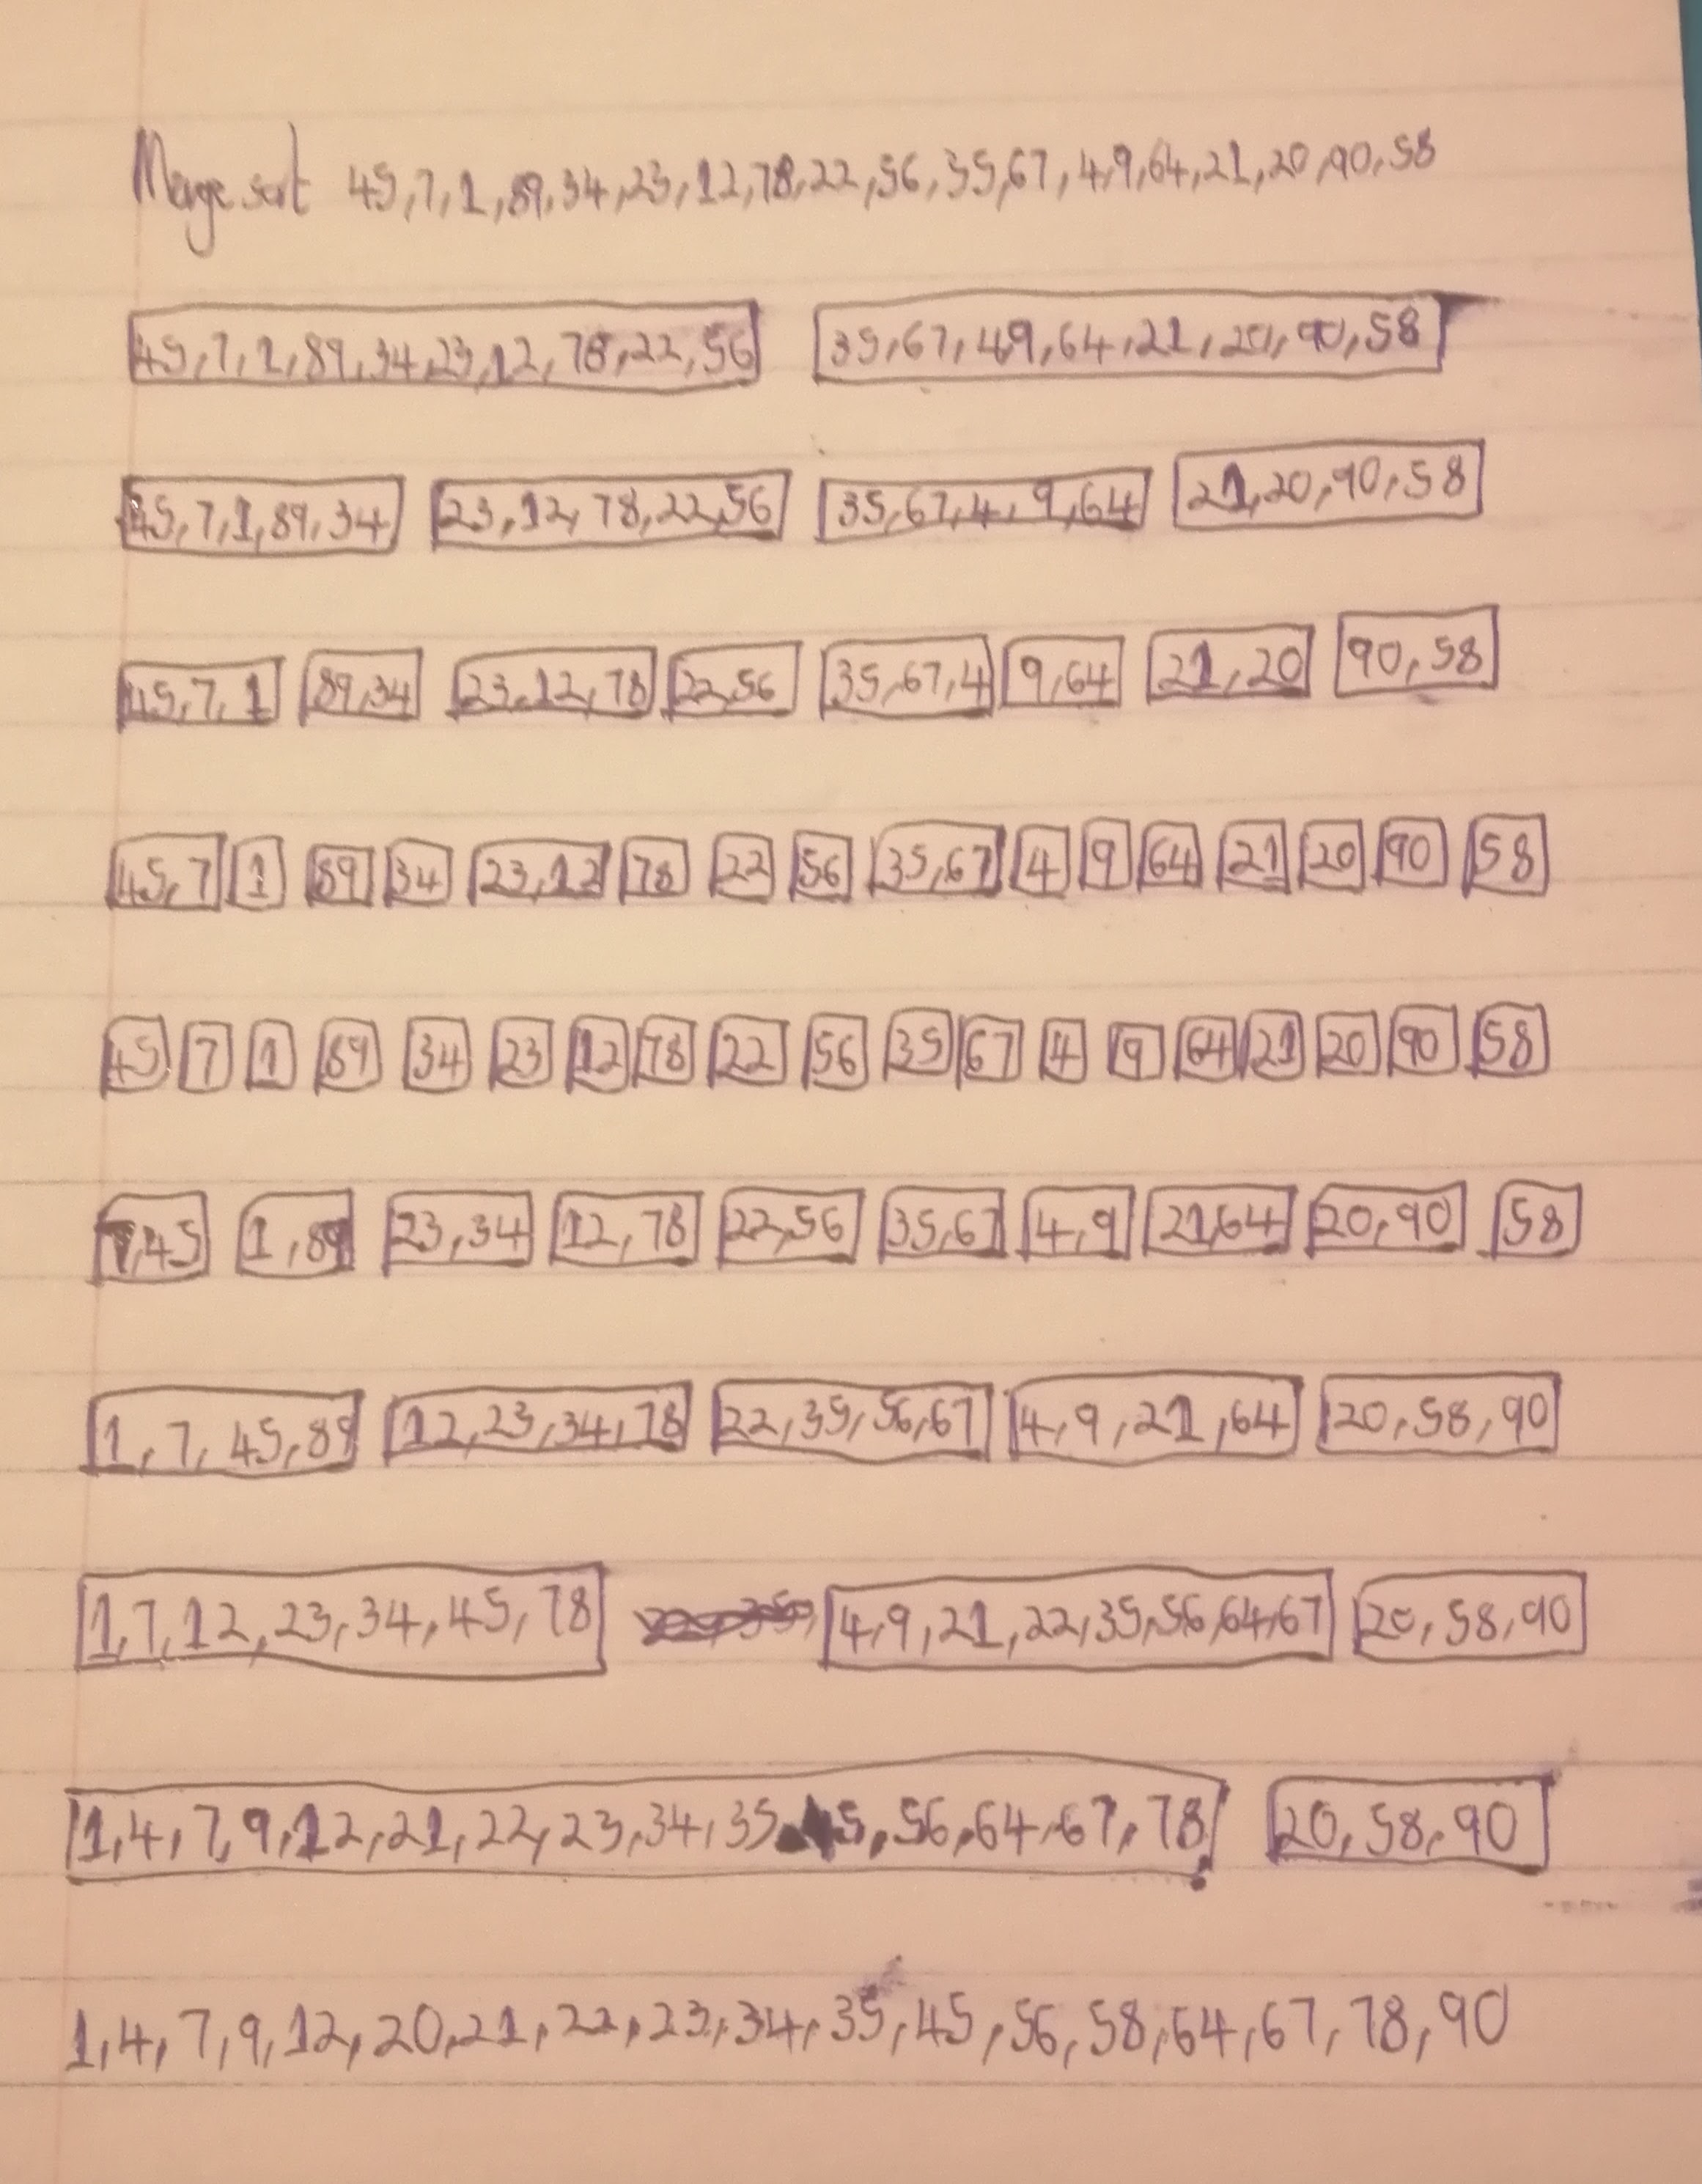 Merge sort 45,7,1,89,34,23,12,78,22,56,35,67,4,9,64,21,20,90,58
45,7,1,89,34,23,12,78,22,56 35,67,4,9,64,21,20,90,58
45,7,1,89,34 23,12,78,22,56 35,67,4,9,64 21,20,90,58
45,7,1 89,34 23,12,78 22,56 35,67,4 9,64 21,20 90,58
45,7 1 89 34 23,12 78 22 56 35,67 4 9 64 21 20 90 58
45 7 1 89 34 23 12 78 22 56 35 67 4 9 64 21 20 90 58
7,45 1,89 23,34 12,78 22,56 35,67 4,9 21,64 20,90 58
1,7,45,89 12,23,34,78 22,35,56,67 4,9,21,64 20,58,90
1,7,12,23,34,45,78 4,9,21,22,35,56,64,67 20,58,90
1,4,7,9,12,21,22,23,34,35,45,56,64,67,78 20,58,90
1,4,7,9,12,20,21,22,23,34,35,45,56,58,64,67,78,90